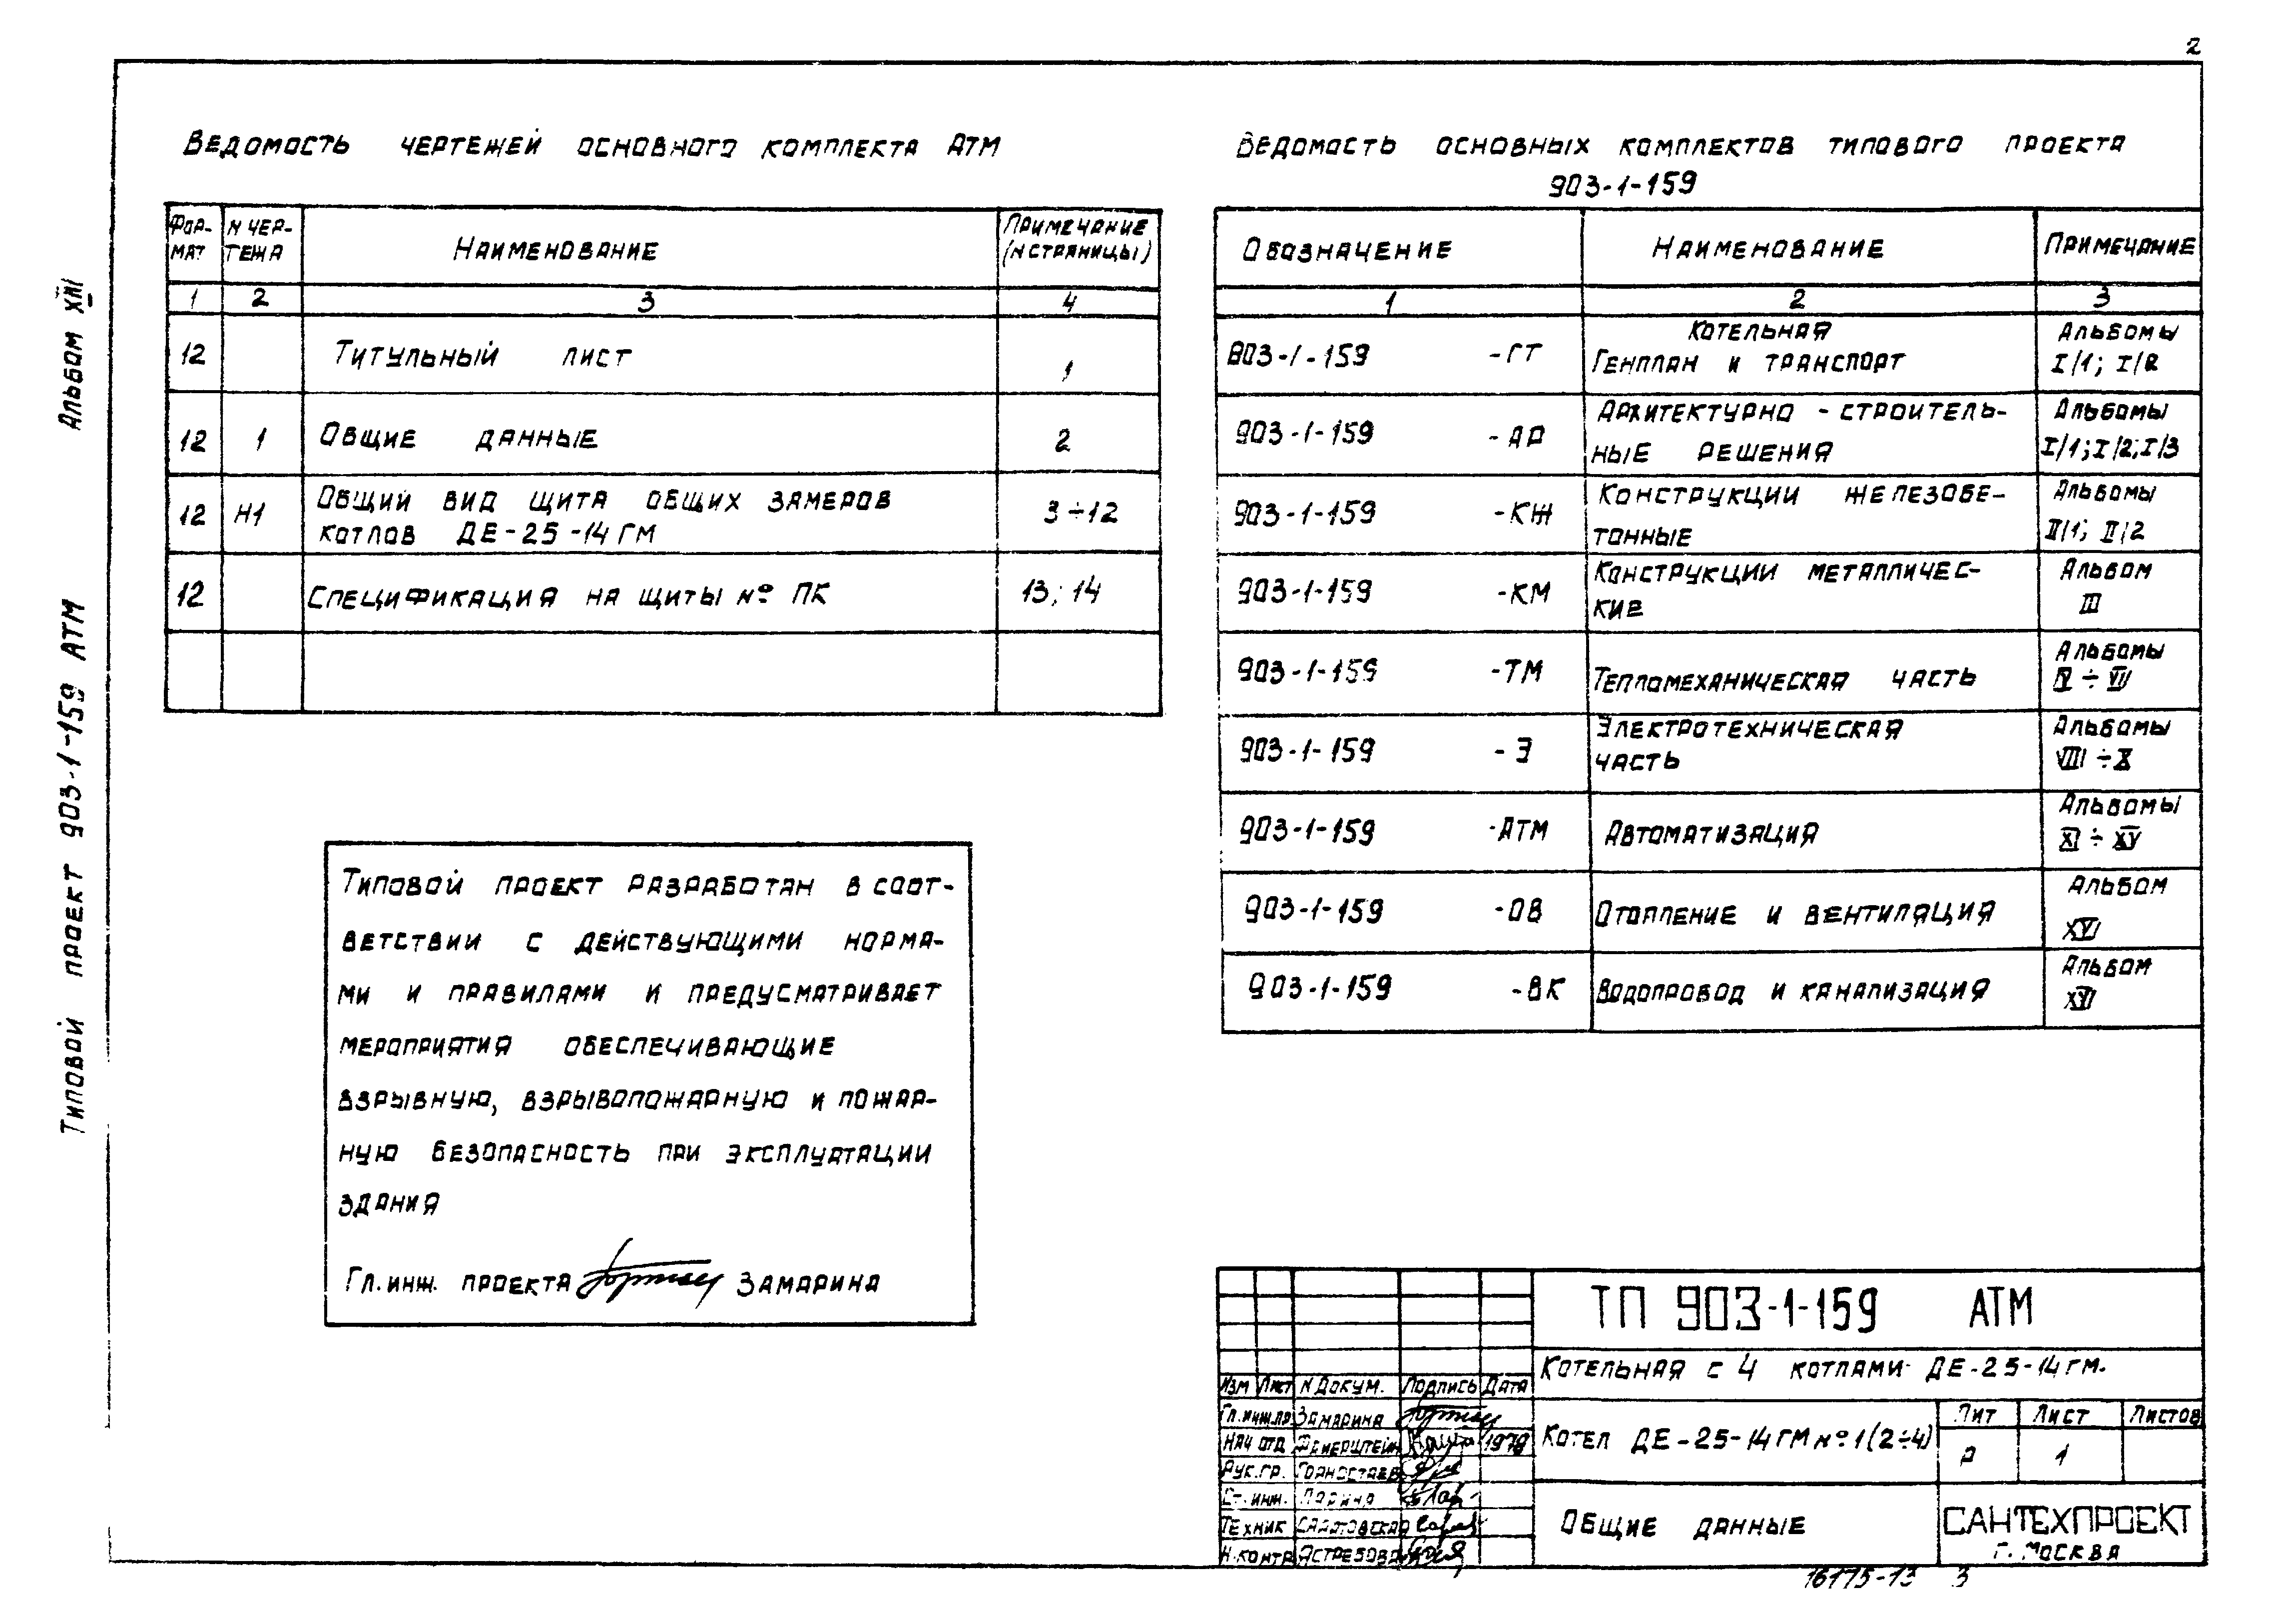 2
Ведомость чертежей основного комплекта АТМ
Фор-
мат
N чер-
тежа
Наименование
Примечание
(N страницы)
1 2 3 4
12 Титульный лист 1
12 1 Общие данные 2
12 Н1 Общий вид щита общих замеров
котлов ДЕ-25-14 ГМ 3÷12
12 Спецификация на щиты № ПК 13; 14
Ведомость основных комплектов типового проекта
903-1-159
Обозначение Наименование Примечание
1 2 3
903-1-159 -ГТ Котельная
Генплан и транспорт Альбомы
I/1; I/2
903-1-159 -АР Архитектурно-строитель-
ные решения Альбомы
I/1; I/2; I/3
903-1-159 -КЖ Конструкции железобе-
тонные Альбомы
II/1; II/2
903-1-159 -КМ Конструкции металличес-
кие Альбом
III
903-1-159 -ТМ Тепломеханическая часть Альбомы
IV ÷ VII
903-1-159 -Э Электротехническая
часть Альбомы
VIII ÷ X
903-1-159 -АТМ Автоматизация Альбомы
XI ÷ XV
903-1-159 -ОВ Отопление и вентиляция Альбом
XVI
903-1-159 -ВК Водопровод и канализация Альбом
XVI
Типовой проект разработан в соот-
ветствии с действующими норма-
ми и правилами и предусматривает
мероприятия обеспечивающие
взрывную, взрывопожарную и пожар-
ную безопасность при эксплуатации
здания
Гл. инж. проекта Замарина
Типовой проект 903-1-159 АТМ Альбом XIII
ТП 903-1-159 АТМ
Котельная с 4 котлами ДЕ-25-14 ГМ.
Изм Лист N докум. Подпись Дата
Гл. инж. пр Замарина
Нач отд Фаерштейн 1978
Рук. гр. Горностаев
Ст. инж. Ларина
Техник Саратовская
Н. контр Ястребова
Котел ДЕ-25-14 ГМ № 1 (2÷4)
Лит Лист Листов
Р 1
Общие данные
САНТЕХПРОЕКТ
г. Москва
16175-13 3